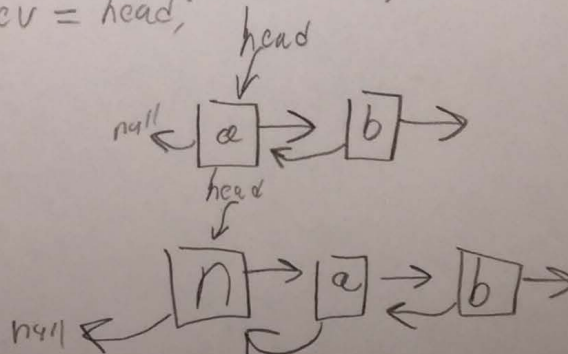 ev = head;
head
null a b
head
n a b
null